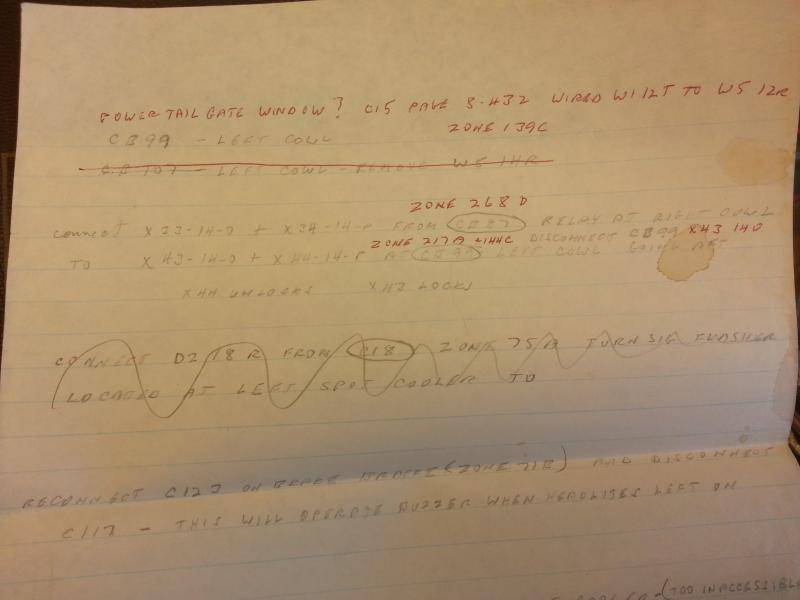 POWER TAIL GATE WINDOW? C15 PAGE 8-432 WIRED W1 12T TO W5 12R
CB99 - LEFT COWL ZONE 139C
CB 107 - LEFT COWL - REMOVE W5 1HR
ZONE 268 D
CONNECT X33-14-O + X34-14-P FROM RELAY AT RIGHT COWL
ZONE 217A +144C DISCONNECT CB99 X43 14O
TO X43-14-O + X44-14-P AT CB99 LEFT COWL GOING AFT
X44 UNLOCKS X43 LOCKS
CONNECT D2 18 R FROM C18 ZONE 75A TURN SIG FLASHER
LOCATED AT LEFT SPOT COOLER TO
RECONNECT C123 ON BRAKE (ZONE 71B) AND DISCONNECT
C117 - THIS WILL OPERATE BUZZER WHEN HEADLITES LEFT ON
(TOO INACCESSIBLE